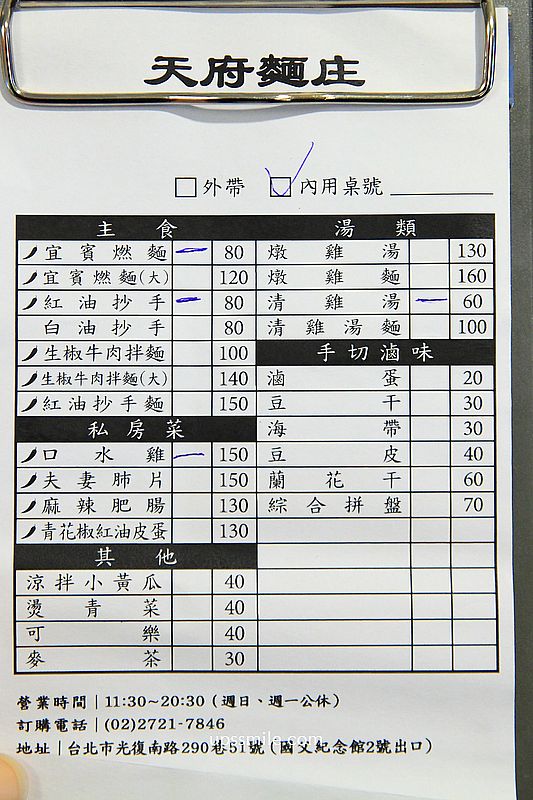 天府麵庄
外帶 內用桌號
主食 湯類
宜賓燃麵 80 燉雞湯 130
宜賓燃麵(大) 120 燉雞麵 160
紅油抄手 80 清雞湯 60
白油抄手 80 清雞湯麵 100
生椒牛肉拌麵 100 手切滷味
生椒牛肉拌麵(大) 140 滷蛋 20
紅油抄手麵 150 豆干 30
私房菜 海帶 30
口水雞 150 豆皮 40
夫妻肺片 150 蘭花干 60
麻辣肥腸 130 綜合拼盤 70
青花椒紅油皮蛋 130
其他
涼拌小黃瓜 40
燙青菜 40
可樂 40
麥茶 30
營業時間｜11:30~20:30 (週日、週一公休)
訂購電話｜(02)2721-7846
地址｜台北市光復南路290巷51號 (國父紀念館2號出口)
upssmile.com